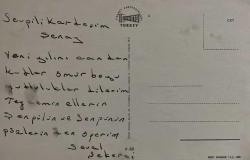 Sevgili Kardeşim
Şenay
Yeni yılını candan
kutlar ömür boyu
mutluluklar dilerim
Teyzemin ellerin
Şengülün ve Şengünün
gözlerinden öperim
Seval
TURKEY